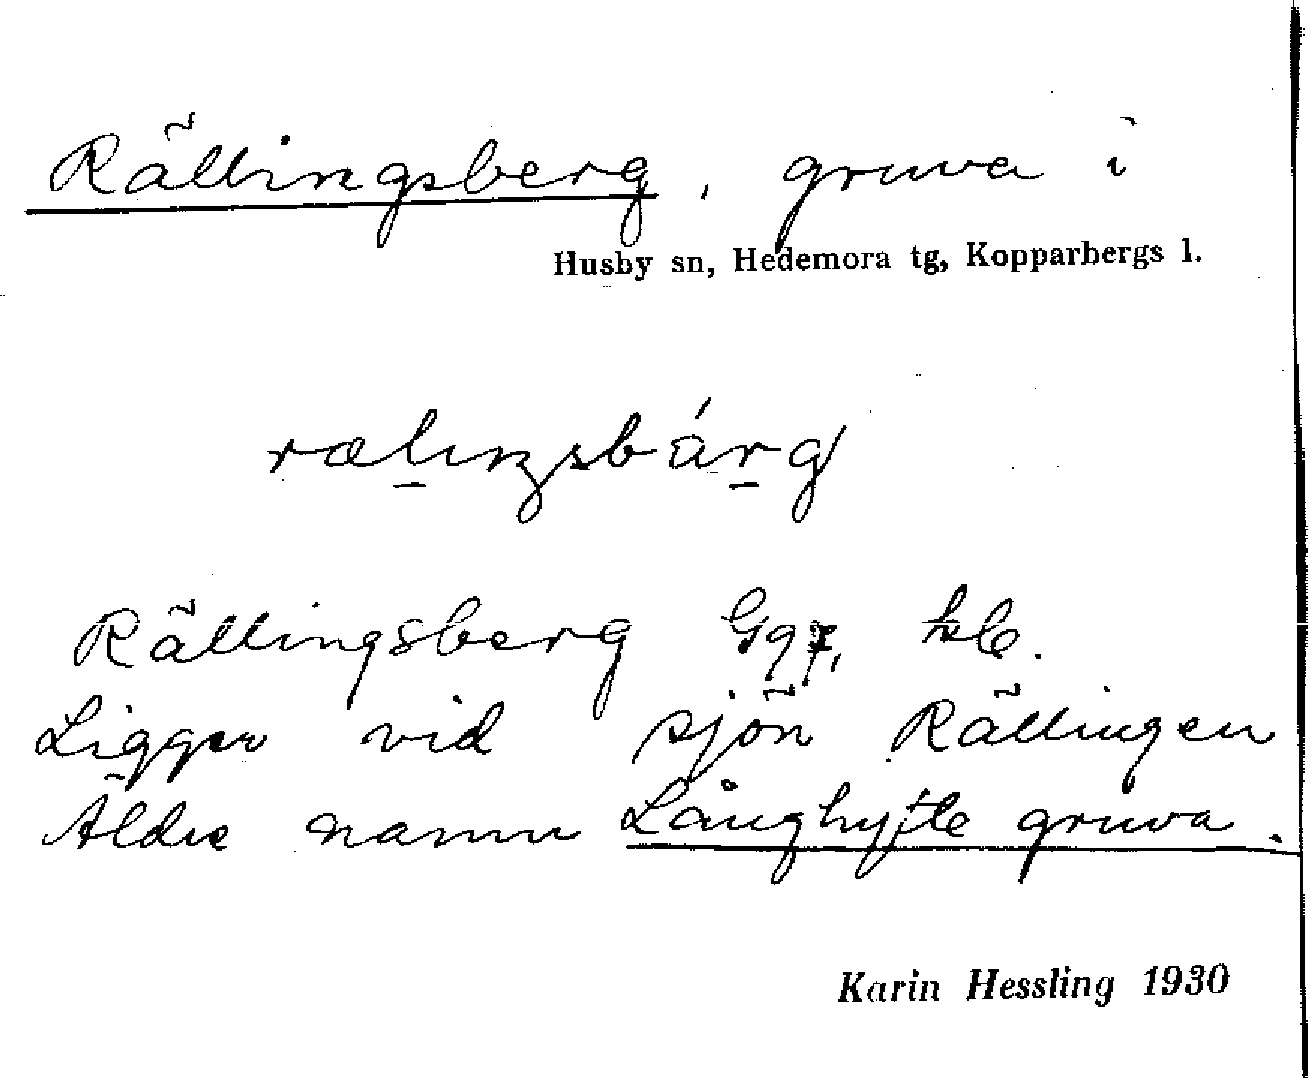 Rällingsberg, gruva i
Husby sn, Hedemora tg, Kopparbergs l.
rælıŋsbárg
Rällingsberg
Ligger vid sjön Rällingen
Äldre namn Långhytte gruva.
Karin Hessling 1930